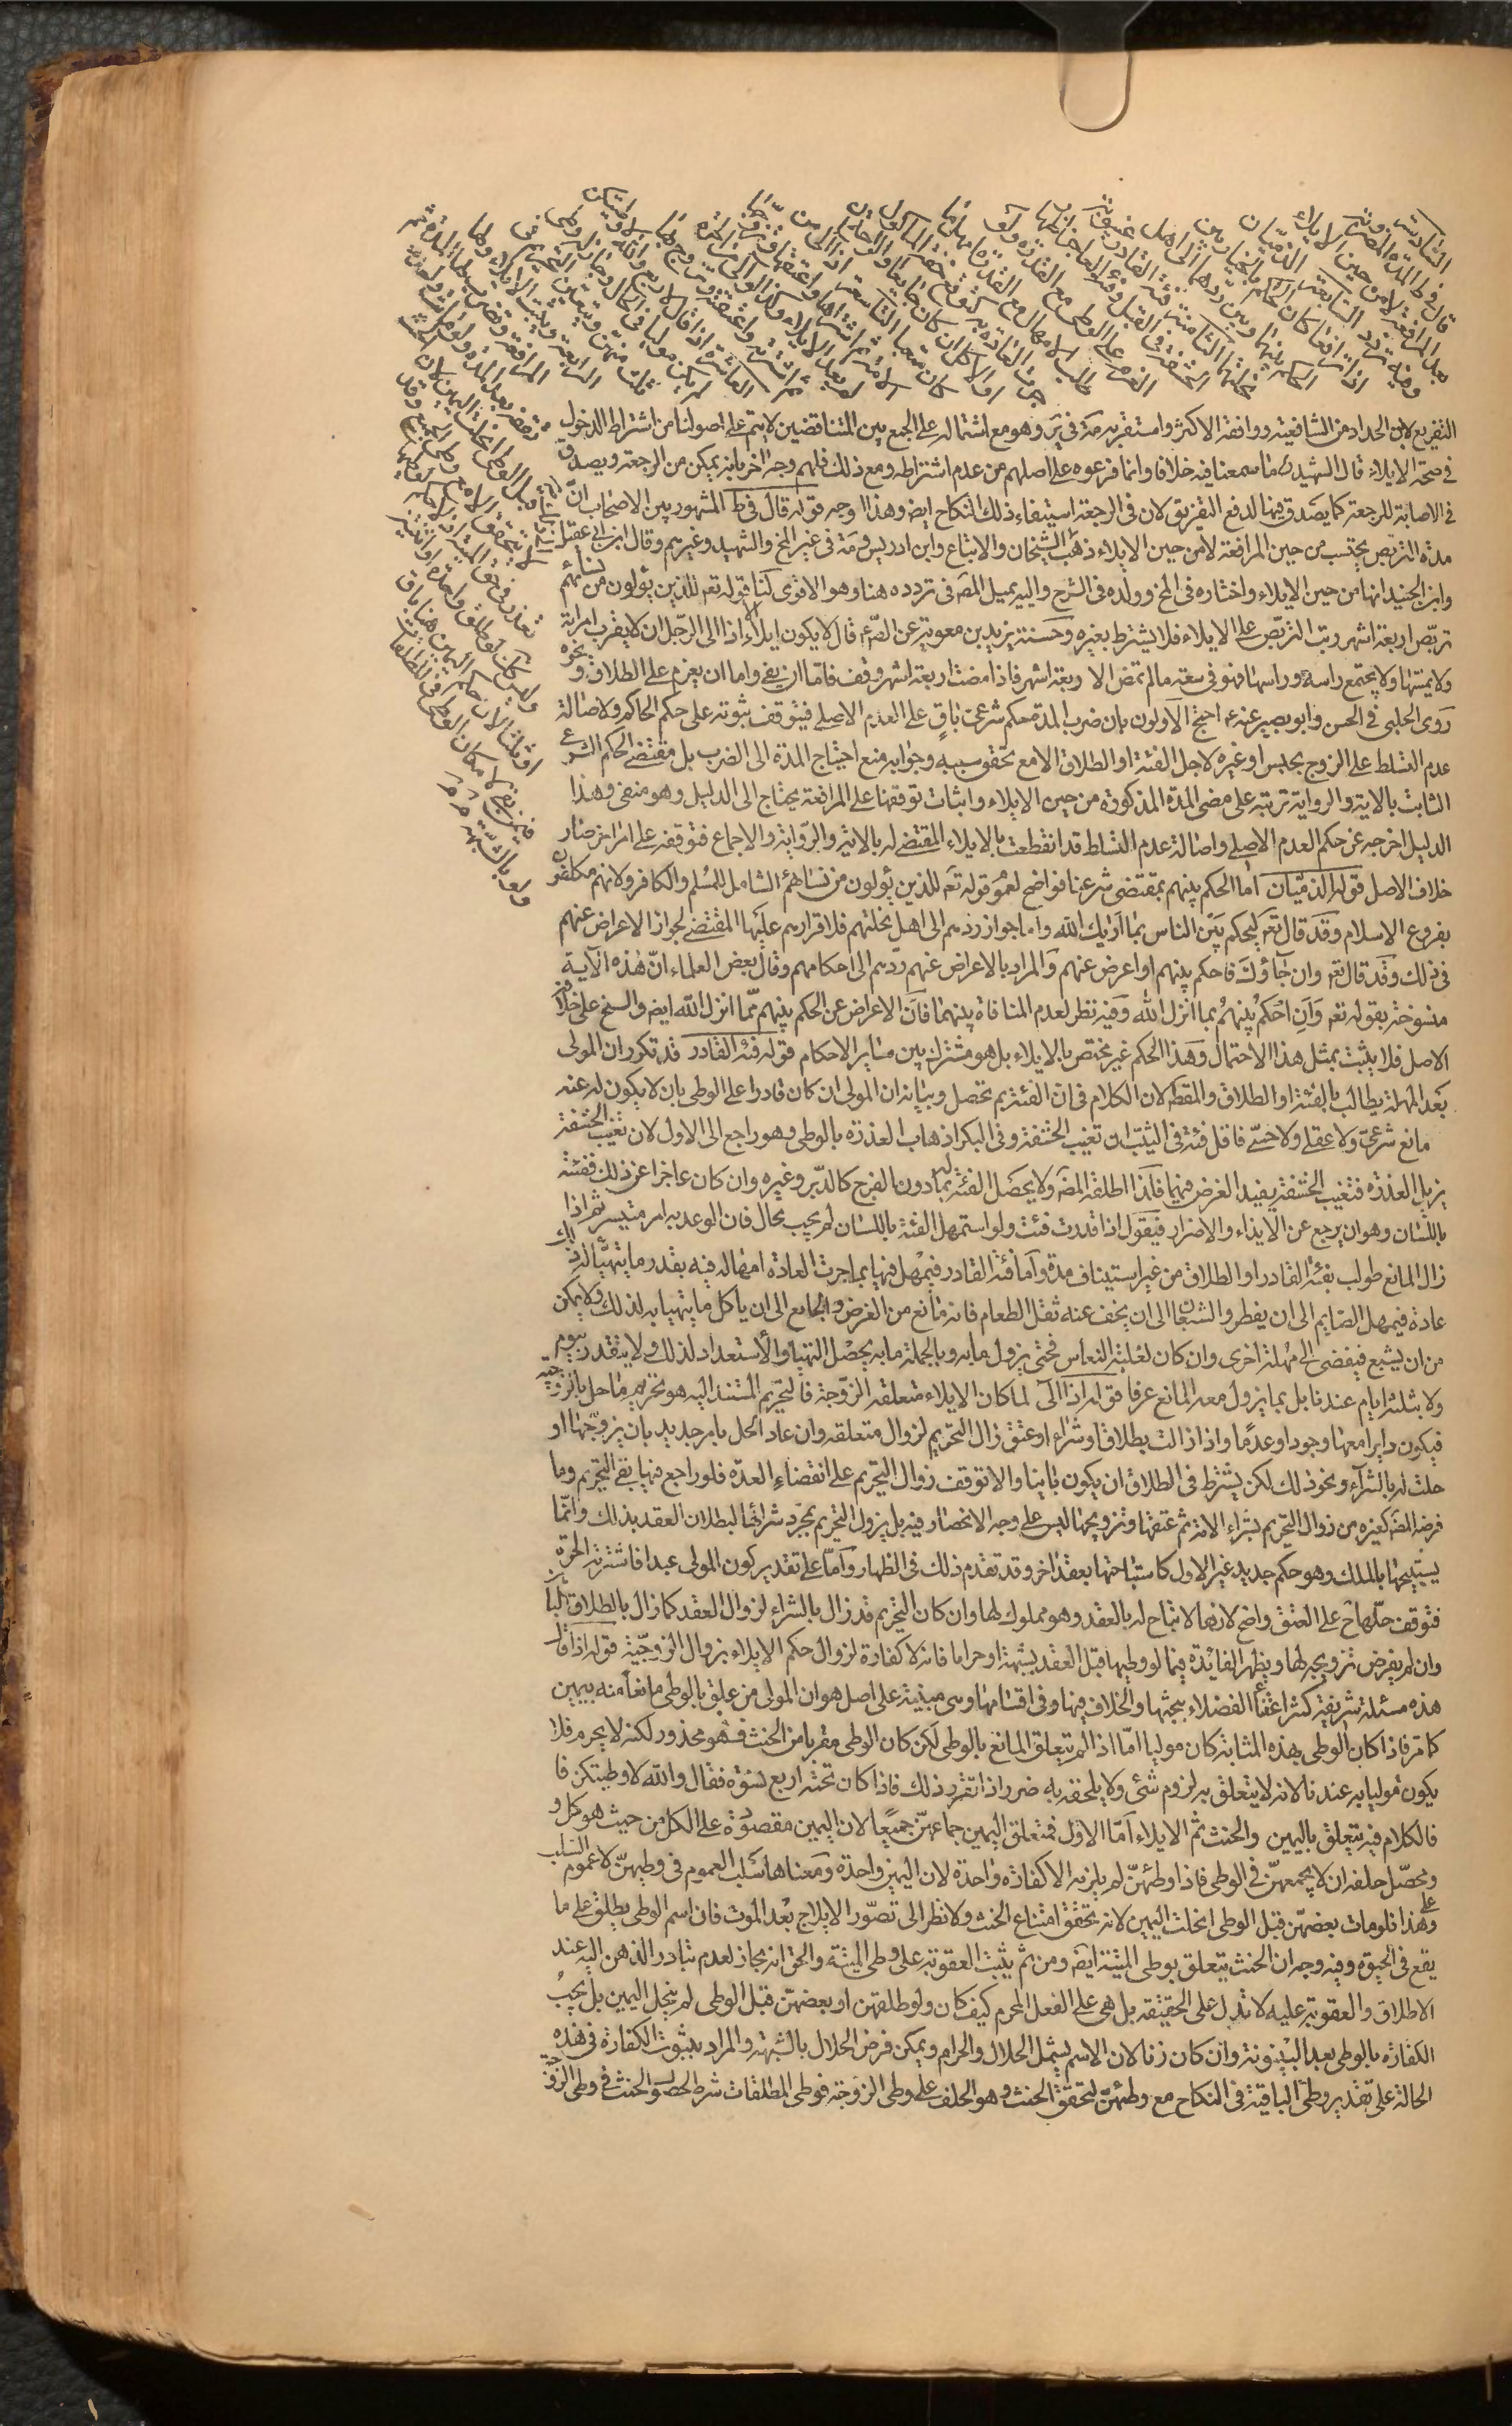 السادسة
قال في ط المدة المضروبة
بعد المرافعة لا من حين الايلاء
وفيه تردد السابعة الذميان
اذا ترافعا كان الحاكم بالخيار بين
الحكم بينهما وبين ردهما الى اهل
نحلتهما الثامنة فئة القادر غيبوبة
الحشفة في القبل وفئة العاجز اظهار
العزم على الوطى مع القدرة ولو
طلب الامهال مع القدرة امهل ما
جرت العادة به كتوقع خفة المأكول
او الاكل ان كان جايعا او الراحة ان
كان متعبا التاسعة اذا الى من
الامة ثم اشتراها واعتقها وتزوجها
لم يعد الايلاء وكذا لو الى من الحرة
ثم اشترته واعتقته وتزوج بها
العاشرة اذا قال لاربع والله لا وطئتكن
لم يكن موليا في الحال وجاز له وطى
ثلث منهن ويتعين التحريم في
الرابعة ويثبت الايلاء ولها
المرافعة ويضرب لها المدة ثم
تقفه بعد المدة ولو ماتت واحدة
قبل الوطى انحلت اليمين لان الحنث
لا يتحقق الا مع وطى الجميع وقد
تعذر في حق الميتة اذ لا حكم لوطئها
وليس كذلك لو طلق واحدة او اثنتين
او ثلثا لان حكم اليمين هنا باق
فيمن بقي لامكان الوطى في المطلقات
ولو بالشبهة
التفريع لابن الحداد من الشافعية ووافقه الاكثر واستقربه مة في ير وهو مع اشتماله على الجمع بين المتناقضين لا يتم على اصولنا من اشتراط الدخول
في صحة الايلاء قال الشهيد ره ما سمعنا فيه خلافا وانما فرعوه على اصلهم من عدم اشتراطه ومع ذلك فلهم وجه اخر بانه يمكن من الرجعة ويصدق
في الاصابة للرجعة كما يصدق فيها لدفع التفريق لان في الرجعة استيفاء ذلك النكاح ايض وهذا اوجه قوله قال في ط المشهور بين الاصحاب ان
مدة التربص يحتسب من حين المرافعة لا من حين الايلاء ذهب الشيخان والاتباع وابن ادريس ومة في غير المخ والشهيد وغيرهم وقال ابن ابي عقيل
وابن الجنيد انها من حين الايلاء واختاره في المخ وولده في الشرح واليه يميل المصة في تردده هنا وهو الاقوى لنا قوله تعه للذين يؤلون من نسائهم
تربص اربعة اشهر رتب التربص على الايلاء فلا يشترط بغيره وحسنة يزيد بن معوية عن الصع قال لا يكون ايلاء الا اذا الى الرجل ان لا يقرب امراته
ولا يمسها ولا يجتمع راسه وراسها فهو في سعة ما لم تمض الاربعة اشهر فاذا مضت اربعة اشهر وقف فاما ان يفئ واما ان يعزم على الطلاق ونحوه
روى الحلبي في الحسن وابو بصير عنه ع احتج الاولون بان ضرب المدة حكم شرعي باق على العدم الاصلي فيتوقف ثبوته على حكم الحاكم ولاصالة
عدم التسلط على الزوج بحبس او غيره لاجل الفئة او الطلاق الا مع تحقق سببه وجوابه منع احتياج المدة الى الضرب بل مقتضى الحكم الشرعي
الثابت بالاية والرواية ترتبه على مضى المدة المذكورة من حين الايلاء واثبات توقفها على المرافعة يحتاج الى الدليل وهو منفى وهذا
الدليل اخرجه عن حكم العدم الاصلي واصالة عدم التسلط قد انقطعت بالايلاء المقتضى له بالاية والرواية والاجماع فتوقفه على امر اخر صار
خلاف الاصل قوله الذميان اما الحكم بينهم بمقتضى شرعنا فواضح لعموم قوله تعه للذين يؤلون من نسائهم الشامل للمسلم والكافر ولانهم مكلفون
بفروع الاسلام وقد قال تعه ليحكم بين الناس بما اريك الله واما جواز ردهم الى اهل نحلتهم فلاقرارهم عليها المقتضى لجواز الاعراض عنهم
في ذلك وقد قال تعه وان جاؤك فاحكم بينهم او اعرض عنهم والمراد بالاعراض عنهم ردهم الى احكامهم وقال بعض العلماء ان هذه الآية
منسوخة بقوله تعه وان احكم بينهم بما انزل الله وفيه نظر لعدم المنافاة بينهما فان الاعراض عن الحكم بينهم مما انزل الله ايض والنسخ على خلاف
الاصل فلا يثبت بمثل هذا الاحتمال وهذا الحكم غير مختص بالايلاء بل هو مشترك بين ساير الاحكام قوله فئة القادر قد تكرر ان المولى
بعد المهلة يطالب بالفئة او الطلاق والمقط لان الكلام في ان الفئة بم تحصل وبيانه ان المولى ان كان قادرا على الوطى بان لا يكون له عنه
مانع شرعي ولا عقلي ولا حسي فاقل فئة في الثيب ان تغيب الحشفة وفي البكر اذهاب العذرة بالوطى وهو راجع الى الاول لان تغيب الحشفة
يزيل العذرة فتغيب الحشفة يفيد الغرض فيهما فلذا اطلقه المصة ولا يحصل الفئة بما دون الفرج كالدبر وغيره وان كان عاجزا عن ذلك ففئته
باللسان وهو ان يرجع عن الايذاء والاضرار فيقول اذا قدرت فئت ولو استمهل الفئة باللسان لم يجب بحال فان الوعد به امر متيسر ثم اذا
زال المانع طولب بفئة القادر او الطلاق من غير استيناف مدة واما فئة القادر فيمهل فيها بما جرت العادة امهاله فيه بقدر ما يتهيأ لذلك
عادة فيمهل الصايم الى ان يفطر والشبعان الى ان يخف عنه ثقل الطعام فانه مانع من الغرض والجايع الى ان ياكل ما يتهيا به لذلك ولا يمكن
من ان يشبع فيفضى الى مهلة اخرى وان كان لغلبة النعاس فحتى يزول ما به وبالجملة ما به يحصل التهيأ والاستعداد لذلك ولا يتقدر بيوم
ولا بثلثة ايام عندنا بل بما يزول معه المانع عرفا قوله اذا آلى لما كان الايلاء متعلقه الزوجة فالتحريم المستند اليه هو تحريم ما حل بالزوجية
فيكون دايرا معها وجودا وعدما واذا زالت بطلاق او شراء او عتق زال التحريم لزوال متعلقه وان عاد الحل بامر جديد بان يزوجها او
حلت له بالشراء ونحو ذلك لكن يشترط في الطلاق ان يكون باينا والا توقف زوال التحريم على انقضاء العدة فلو راجع فيها بقى التحريم وما
فرضه المصة كغيره من زوال التحريم بشراء الامة ثم عتقها وتزويجها ليس على وجه الانحصار فيه بل يزول التحريم بمجرد شرائها لبطلان العقد بذلك وانما
يستبيحها بالملك وهو حكم جديد غير الاول كاستباحتها بعقد اخر وقد تقدم ذلك في الظهار واما على تقدير كون المولى عبدا فاشترته الحرة
فتوقف حلها ح على العتق واضح لانها لا تباح له بالعقد وهو مملوك لها وان كان التحريم قد زال بالشراء لزوال العقد كما زال بالطلاق باينا
وان لم يفرض تزويجه لها ويظهر الفائدة فيما لو وطيها قبل العقد بشبهة او حراما فانه لا كفارة لزوال حكم الايلاء بزوال الزوجية قوله اذا قال
هذه مسئلة شريفة كثر اعتناء الفضلاء ببحثها والخلاف فيها وفي اقسامها وهي مبنية على اصل هو ان المولى من علق بالوطى مانعا منه بيمين
كما مر فاذا كان الوطى بهذه المثابة كان موليا اما اذا لم يتعلق المانع بالوطى لكن كان الوطى مقربا من الحنث فهو محذور لكنه لا يحرم فلا
يكون موليا به عندنا لانه لا يتعلق به لزوم شئ ولا يلحقه به ضرر اذا تقرر ذلك فاذا كان تحته اربع نسوة فقال والله لا وطيتكن فا
فالكلام فيه يتعلق باليمين والحنث ثم الايلاء اما الاول فمتعلق اليمين جماعهن جميعا لان اليمين مقصورة على الكل من حيث هو كل و
ومحصل حلفه ان لا يجمعهن في الوطى فاذا وطئهن لم يلزمه الا كفارة واحدة لان اليمين واحدة ومعناها سلب العموم في وطيهن لا عموم السلب
وعلى هذا فلو مات بعضهن قبل الوطى انحلت اليمين لانه يتحقق امتناع الحنث ولا نظر الى تصور الايلاج بعد الموت فان اسم الوطى يطلق على ما
يقع في الحيوة وفيه وجه ان الحنث يتعلق بوطى الميتة ايضه ومن ثم يثبت العقوبة على وطى الميتة والحق انه مجاز لعدم تبادر الذهن اليه عند
الاطلاق والعقوبة عليه لا تدل على الحقيقة بل هي على الفعل المحرم كيف كان ولو طلقهن او بعضهن قبل الوطى لم ينحل اليمين بل يجب
الكفارة بالوطى بعد البينونة وان كان زنا لان الاسم يشمل الحلال والحرام ويمكن فرض الحلال بالشبهة والمراد بثبوت الكفارة في هذه
الحالة على تقدير وطى الباقية في النكاح مع وطئهن لتحقق الحنث وهو الحلف على وطى الزوجة فوطى المطلقات شرط لحصول الحنث في وطى الزوجة